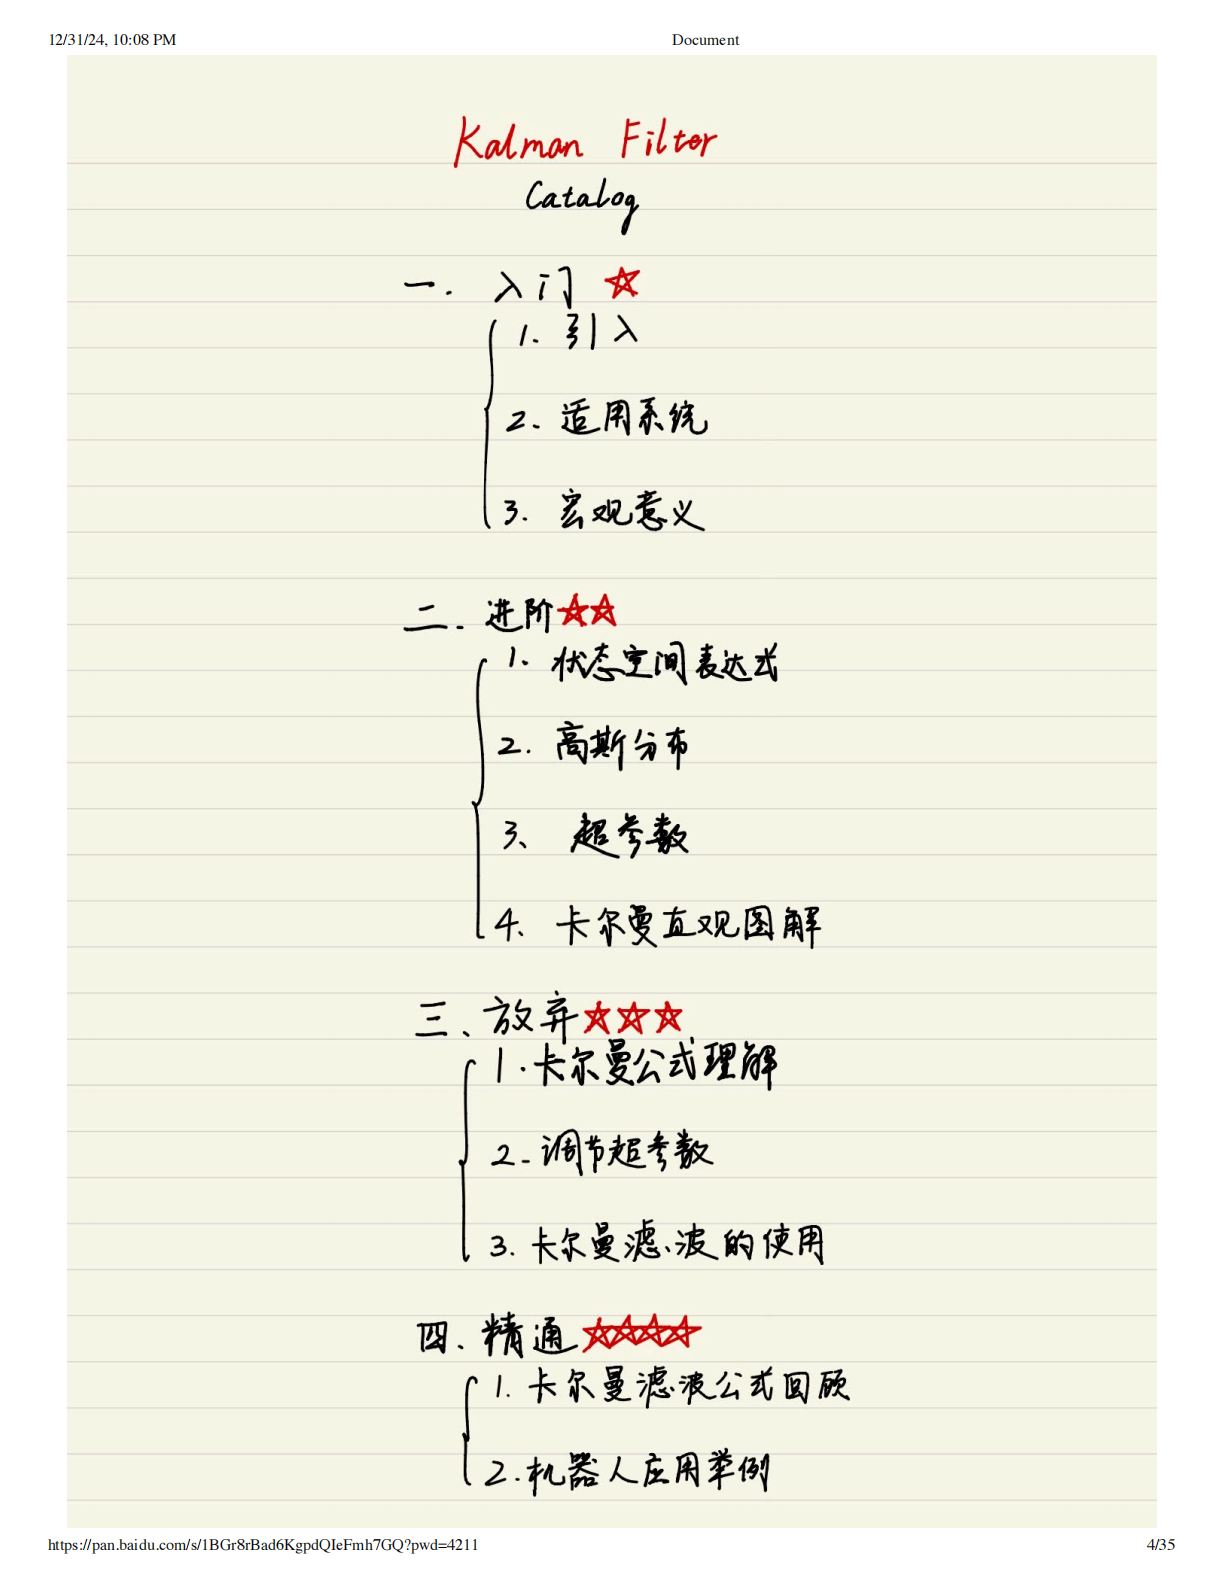 12/31/24, 10:08 PM Document
Kalman Filter
Catalog
一. 入门
1. 引入
2. 适用系统
3. 宏观意义
二. 进阶
1. 状态空间表达式
2. 高斯分布
3、 超参数
4、 卡尔曼直观图解
三、放弃
1.卡尔曼公式理解
2.调节超参数
3.卡尔曼滤波的使用
四、精通
1. 卡尔曼滤波公式回顾
2.机器人应用举例
https://pan.baidu.com/s/1BGr8rBad6KgpdQIeFmh7GQ?pwd=4211 4/35